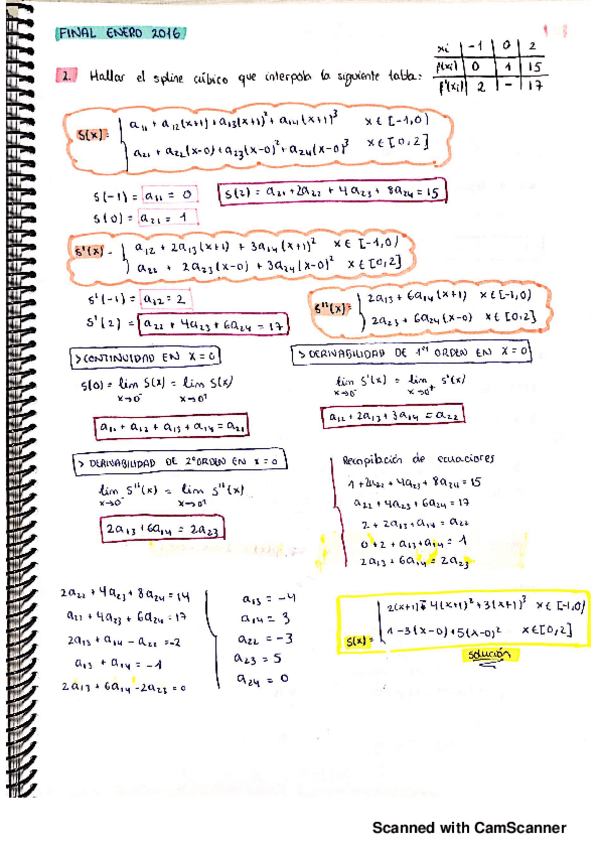 FINAL ENERO 2016
2. Hallar el spline cúbico que interpola la siguiente tabla:
xi | -1 | 0 | 2
f(xi) | 0 | 1 | 15
f'(xi) | 2 | - | 17
S(x) = { a11 + a12(x+1) + a13(x+1)² + a14(x+1)³ x∈[-1,0)
a21 + a22(x-0) + a23(x-0)² + a24(x-0)³ x∈[0,2]
S(-1) = a11 = 0 S(2) = a21 + 2a22 + 4a23 + 8a24 = 15
S(0) = a21 = 1
S'(x) = { a12 + 2a13(x+1) + 3a14(x+1)² x∈[-1,0)
a22 + 2a23(x-0) + 3a24(x-0)² x∈[0,2]
S'(-1) = a12 = 2
S'(2) = a22 + 4a23 + 6a24 = 17
S''(x) = { 2a13 + 6a14(x+1) x∈[-1,0)
2a23 + 6a24(x-0) x∈[0,2]
> CONTINUIDAD EN X = 0
S(0) = lim S(x) = lim S(x)
x→0⁻ x→0⁺
a11 + a12 + a13 + a14 = a21
> DERIVABILIDAD DE 1er ORDEN EN X = 0
lim S'(x) = lim S'(x)
x→0⁻ x→0⁺
a12 + 2a13 + 3a14 = a22
> DERIVABILIDAD DE 2º ORDEN EN X = 0
lim S''(x) = lim S''(x)
x→0⁻ x→0⁺
2a13 + 6a14 = 2a23
Recopilación de ecuaciones
1 + 2a22 + 4a23 + 8a24 = 15
a22 + 4a23 + 6a24 = 17
2 + 2a13 + a14 = a22
0 + 2 + a13 + a14 = 1
2a13 + 6a14 = 2a23
2a22 + 4a23 + 8a24 = 14
a22 + 4a23 + 6a24 = 17
2a13 + a14 - a22 = -2
a13 + a14 = -1
2a13 + 6a14 - 2a23 = 0
a13 = -4
a14 = 3
a22 = -3
a23 = 5
a24 = 0
S(x) = { 2(x+1) - 4(x+1)² + 3(x+1)³ x∈[-1,0)
1 - 3(x-0) + 5(x-0)² x∈[0,2]
solución
Scanned with CamScanner